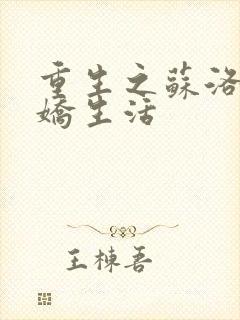 重生之蘇洛
嬌生活
王棟吾